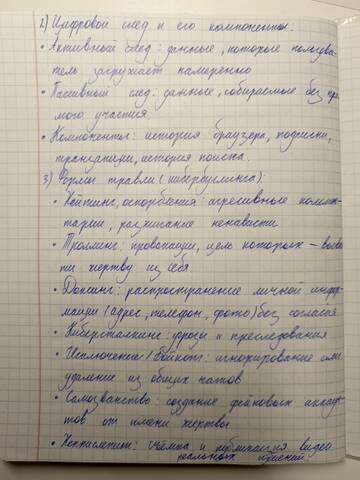 2) Цифровой след и его компоненты:
• Активный след: данные, которые пользова-
тель загружает намеренно
• Пассивный след: данные, собираемые без пря-
мого участия.
• Компоненты: история браузера, подписки,
транзакции, история поиска.
3) Формы травли (кибербуллинга):
• Хейтинг, оскорбления: агрессивные коммен-
тарии, разжигание ненависти
• Троллинг: провокации, цель которых – вывес-
ти жертву из себя.
• Доксинг: распространение личной инфор-
мации (адрес, телефон, фото) без согласия
• Киберсталкинг: угрозы и преследования
• Исключение/бойкот: игнорирование или
удаление из общих чатов
• Самозванство: создание фейковых аккаун-
тов от имени жертвы
• Хеппислепинг: съёмка и публикация видео
реальных